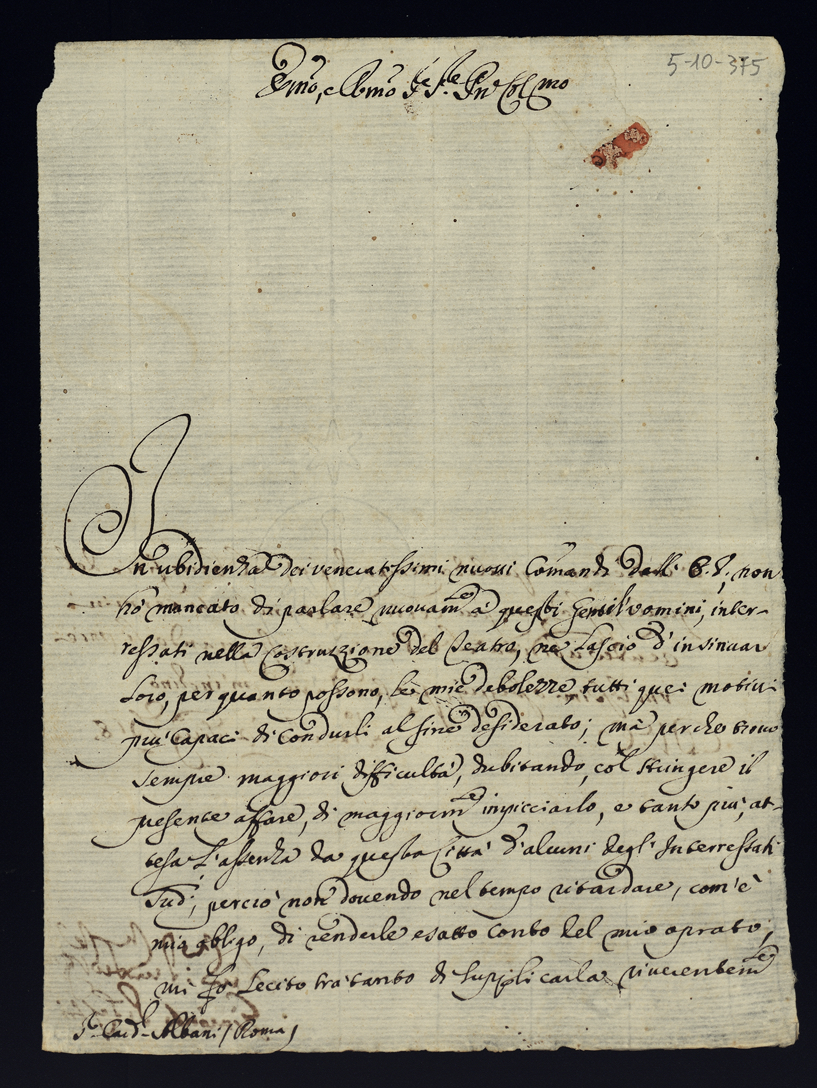 5-10-375
Em̃o, e Rmo Sr. Sr. Prõn Col.mo
In ubidienza dei veneratissimi nuovi Comandi dell' E. V., non
hò mancato di parlare nuovam.te à questi Gentilvomini, inter-
ressati nella Costruzzione del Teatro, ne lascio d'insinuar
Loro, per quanto possono, le mie debolezze tutti quei motivi
più Capaci di Condurli al fine desiderato; mà perche trovo
sempre maggiori difficultà, dubitando, col stringere il
presente affare, di maggiorm.te inpicciarlo, e tanto più, at-
tesa l'assenza da questa Città d'alcuni degli Interressati
Sud.i, perciò non dovendo nel tempo ritardare, com'è
mio obligo, di renderle esatto conto del mio oprato,
mi fo lecito tratanto di supplicarla riverentem.te
Sr. Card. Albani / Roma /